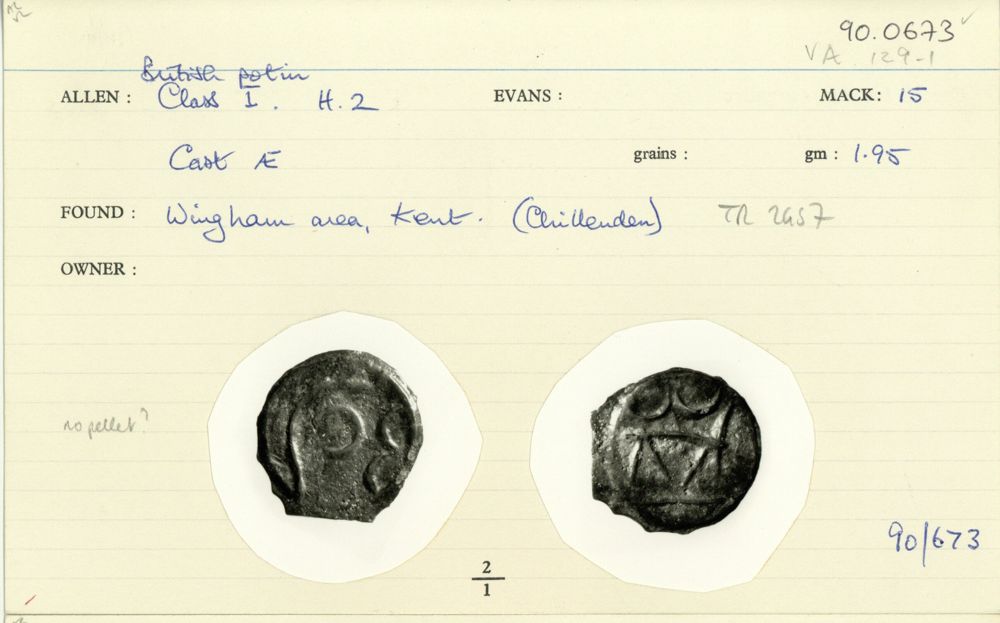 90.0673 ✓
VA 129-1
British potin
ALLEN : Class I. H.2 EVANS : MACK: 15
Cast Æ grains : gm : 1.95
FOUND : Wingham area, Kent. (Chillenden) TR 2457
OWNER :
no pellet?
90/673
2
1